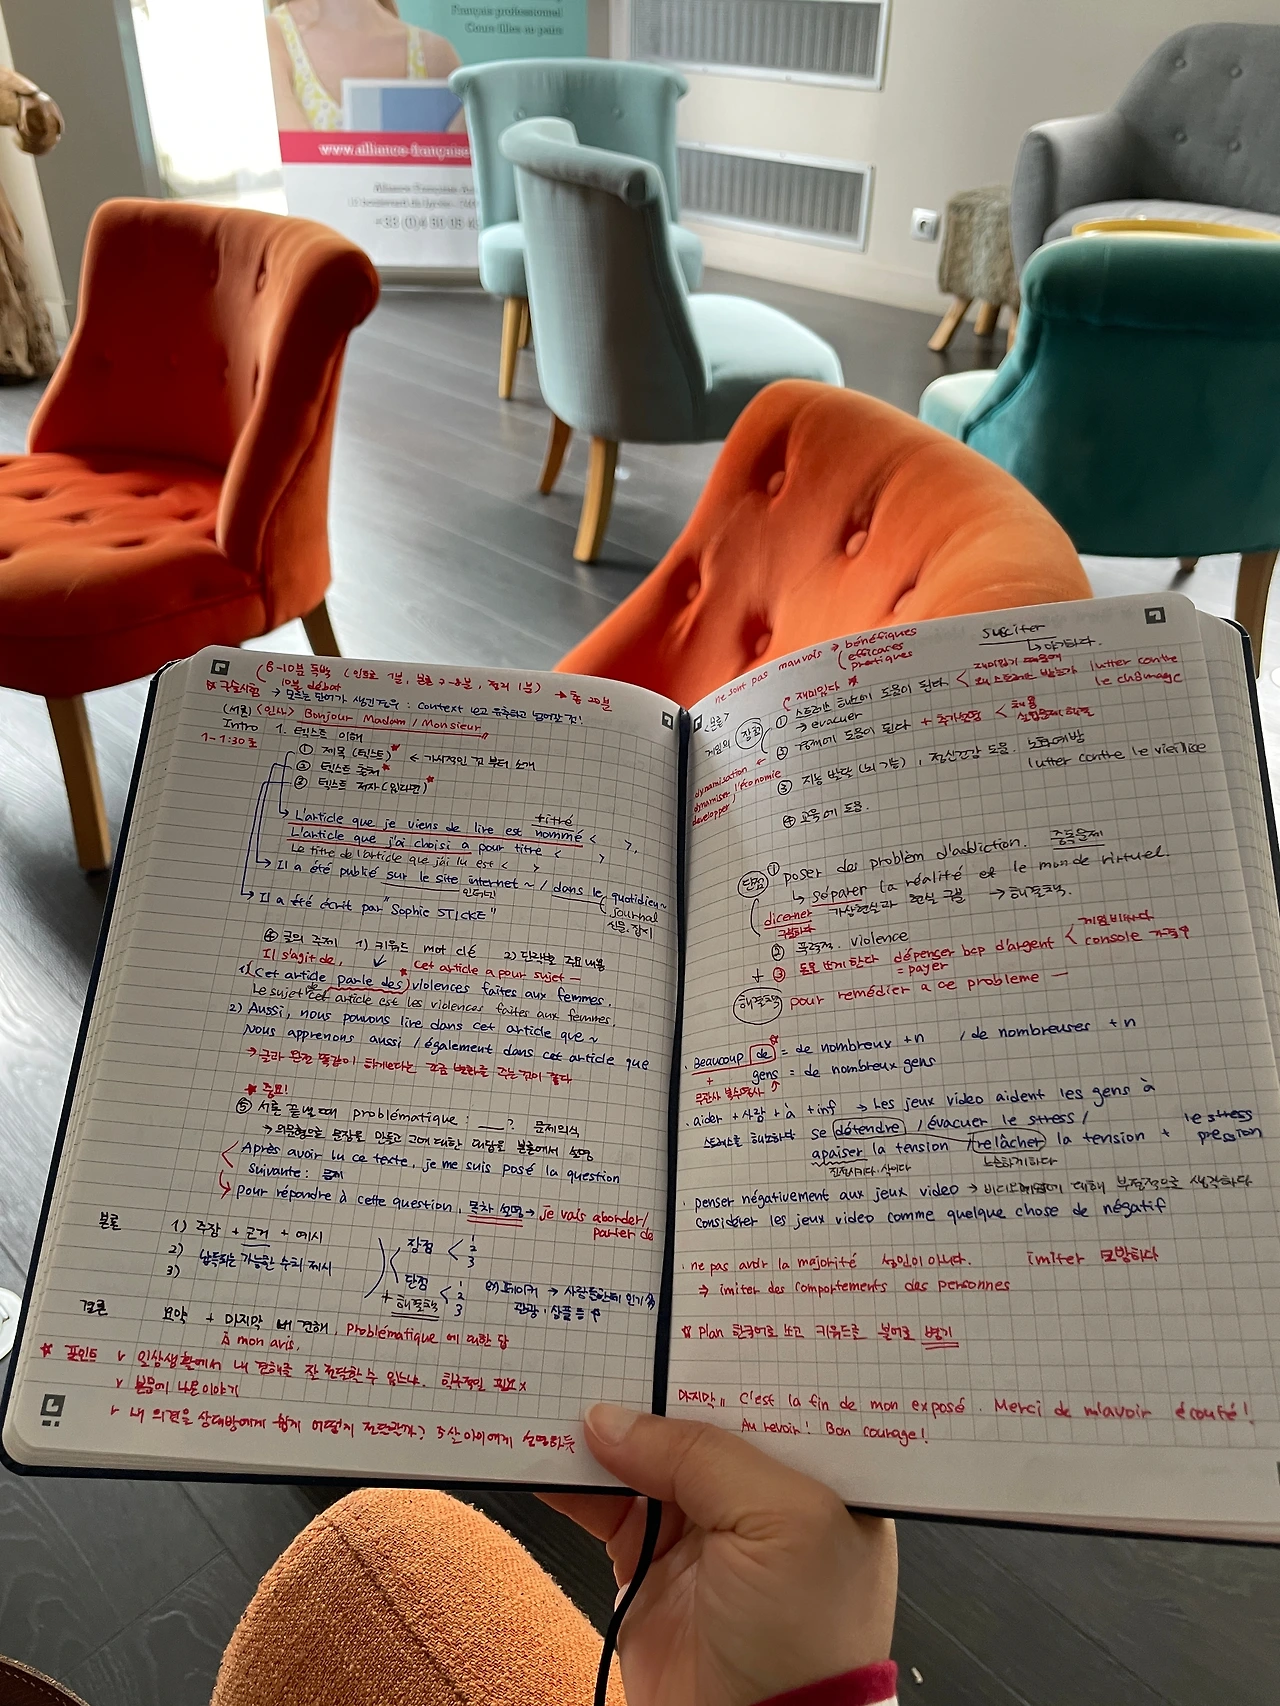 Français professionnel
www.alliance-française
+33 (0)4 50
(8-10분 독백 (인트로 1분, 본론 7-8분, 정리 1분) → 총 20분
10분 débat
구술시험 → 모르는 단어가 생긴경우 : context 보고 유추하고 넘어갈 것!
(서론) (인사) Bonjour Madam / Monsieur
Intro 1. 텍스트 이해
1-1:30초
① 제목 (텍스트) ← 가시적인 것 부터 소개
② 텍스트 출처
③ 텍스트 저자 (있다면)
titré
L'article que je viens de lire est nommé < >.
L'article que j'ai choisi a pour titre < >
Le titre de l'article que j'ai lu est < >
Il a été publié sur le site internet ~ / dans le quotidien ~
인터넷 journal
신문, 잡지
Il a été écrit par "Sophie STICKE"
④ 글의 주제 1) 키워드 mot clé 2) 단락별 주요내용
Il s'agit de, Cet article a pour sujet —
1) Cet article parle des violences faites aux femmes.
Le sujet de cet article est les violences faites aux femmes.
2) Aussi, nous pouvons lire dans cet article que ~
Nous apprenons aussi / également dans cet article que
→ 글과 완전 똑같이 하기보다는 조금 변화를 주는것이 좋다
★ 중요!
⑤ 서론 끝낼 때 problématique : ___? 문제의식
→ 의문형으로 문장을 만들고 그에 대한 대답을 본론에서 설명
Après avoir lu ce texte, je me suis posé la question
suivante : 문제
pour répondre à cette question, 목차 설명 → je vais aborder/
parler de
본론 1) 주장 + 근거 + 예시
2) 납득되는 가능한 수치 제시
3)
장점 < 1 2 3
단점 < 1 2 3
+ 해결책
→ 사람들한테 인기
관광, 상품 등
결론 요약 + 마지막 내 견해, Problématique 에 대한 답
À mon avis,
★ 포인트 v 일상생활에서 내 견해를 잘 전달할 수 있느냐. 학구적일 필요 x
v 본문에 나온 이야기
v 내 의견을 상대방에게 쉽게 어떻게 전달할까? 5살 아이에게 설명하듯
ne sont pas mauvais → bénéfiques
efficaces
pratiques
susciter
↳ 야기하다.
<본론>
게임의 장점
재미있다
① 스트레스 해소에 도움이 된다 <
→ évacuer
② 경제에 도움이 된다 + 추가설명 <
lutter contre
le chômage
dynamisation
dynamiser l'économie
développer
③ 지능 발달 (뇌 기능), 정신건강 도움. 노화예방
lutter contre le vieillisse
④ 교육에 도움.
단점 ① poser des problèm d'addiction. 중독문제
↳ séparer la réalité et le monde virtuel.
dicerner 가상현실과 현실 구분 → 해결책.
구별하다
② 폭력적. violence
+ ③ 돈을 쓰게 한다 dépenser bcp d'argent < 게임 비싸다
console 가격↑
= payer
해결책 pour remédier a ce probleme —
. Beaucoup de = de nombreux + n / de nombreuses + n
+ gens = de nombreux gens
무관사 복수명사
. aider + 사람 + à + inf → Les jeux video aident les gens à
스트레스를 해소하다 se détendre / évacuer le stress /
apaiser la tension / relâcher la tension + le stress
pression
진정시키다.
느슨하게하다
. penser négativement aux jeux video → 비디오게임에 대해 부정적으로 생각하다
considérer les jeux video comme quelque chose de négatif
. ne pas avoir la majorité 성인이 아니다. imiter 모방하다
→ imiter des comportements des personnes
★ Plan 한국어로 쓰고 키워드를 불어로 병기
마지막 " C'est la fin de mon exposé. Merci de m'avoir écouté!
Au revoir! Bon courage!